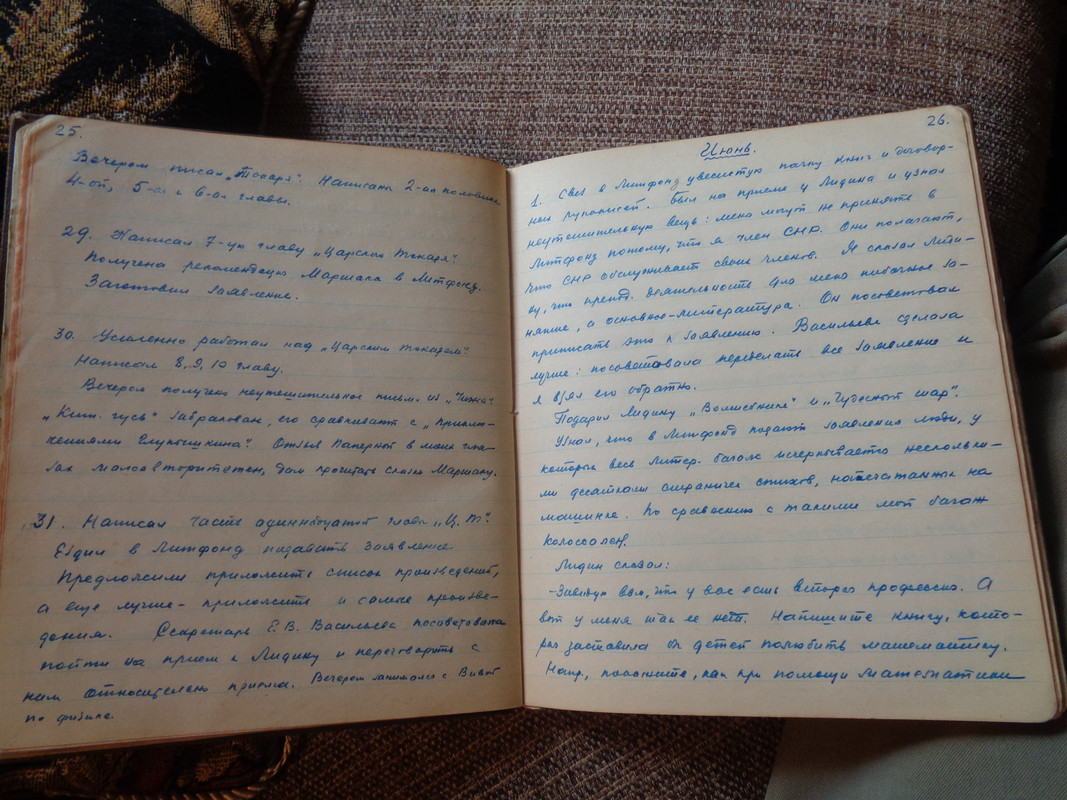 25.
Вечером писал „Токаря". Написана 2-ая половина
4-ой, 5-ая и 6-ая главы.
29. Написал 7-ую главу „Царский токарь".
Получена рекомендация Маршака в Литфонд.
Заготовил заявление.
30. Усиленно работал над „Царским токарем".
Написал 8, 9, 10 главу.
Вечером получено неутешительное письмо из „Чижа".
„Кин. гусь" забракован, его сравнивают с „Приклю-
чениями Глупышкина". Отзыв Паперной в моих гла-
зах малоавторитетен, дам прочитать сказку Маршаку.
31. Написал часть одиннадцатой главы „Ц. Т".
Ездил в Литфонд подавать заявление
Предложили приложить список произведений,
а еще лучше - приложить и самые произве-
дения. Секретарь Е. В. Васильева посоветовала
пойти на прием к Лидину и переговорить с
ним относительно приема. Вечером занимался с Вивой
по физике.
26.
Июнь.
1. Свез в Литфонд увесистую пачку книг и договор-
ных рукописей. Был на приеме у Лидина и узнал
неутешительную вещь: меня могут не принять в
Литфонд потому, что я член СНР. Они полагают,
что СНР обслуживает своих членов. Я сказал Лиди-
ну, что препод. деятельность для меня побочное за-
нятие, а основное - литература. Он посоветовал
приписать это к заявлению. Васильева сделала
лучше: посоветовала переделать все заявление и
я взял его обратно.
Подарил Лидину „Волшебника" и „Чудесный шар".
Узнал, что в Литфонд подают заявления люди, у
которых весь литер. багаж исчерпывается нескольки-
ми десятками страничек стихов, напечатанных на
машинке. По сравнению с такими мой багаж
колоссален.
Лидин сказал:
- Завидую вам, что у вас есть вторая профессия. А
вот у меня так ее нет. Напишите книгу, кото-
рая заставила бы детей полюбить математику.
Напр., покажите, как при помощи математики